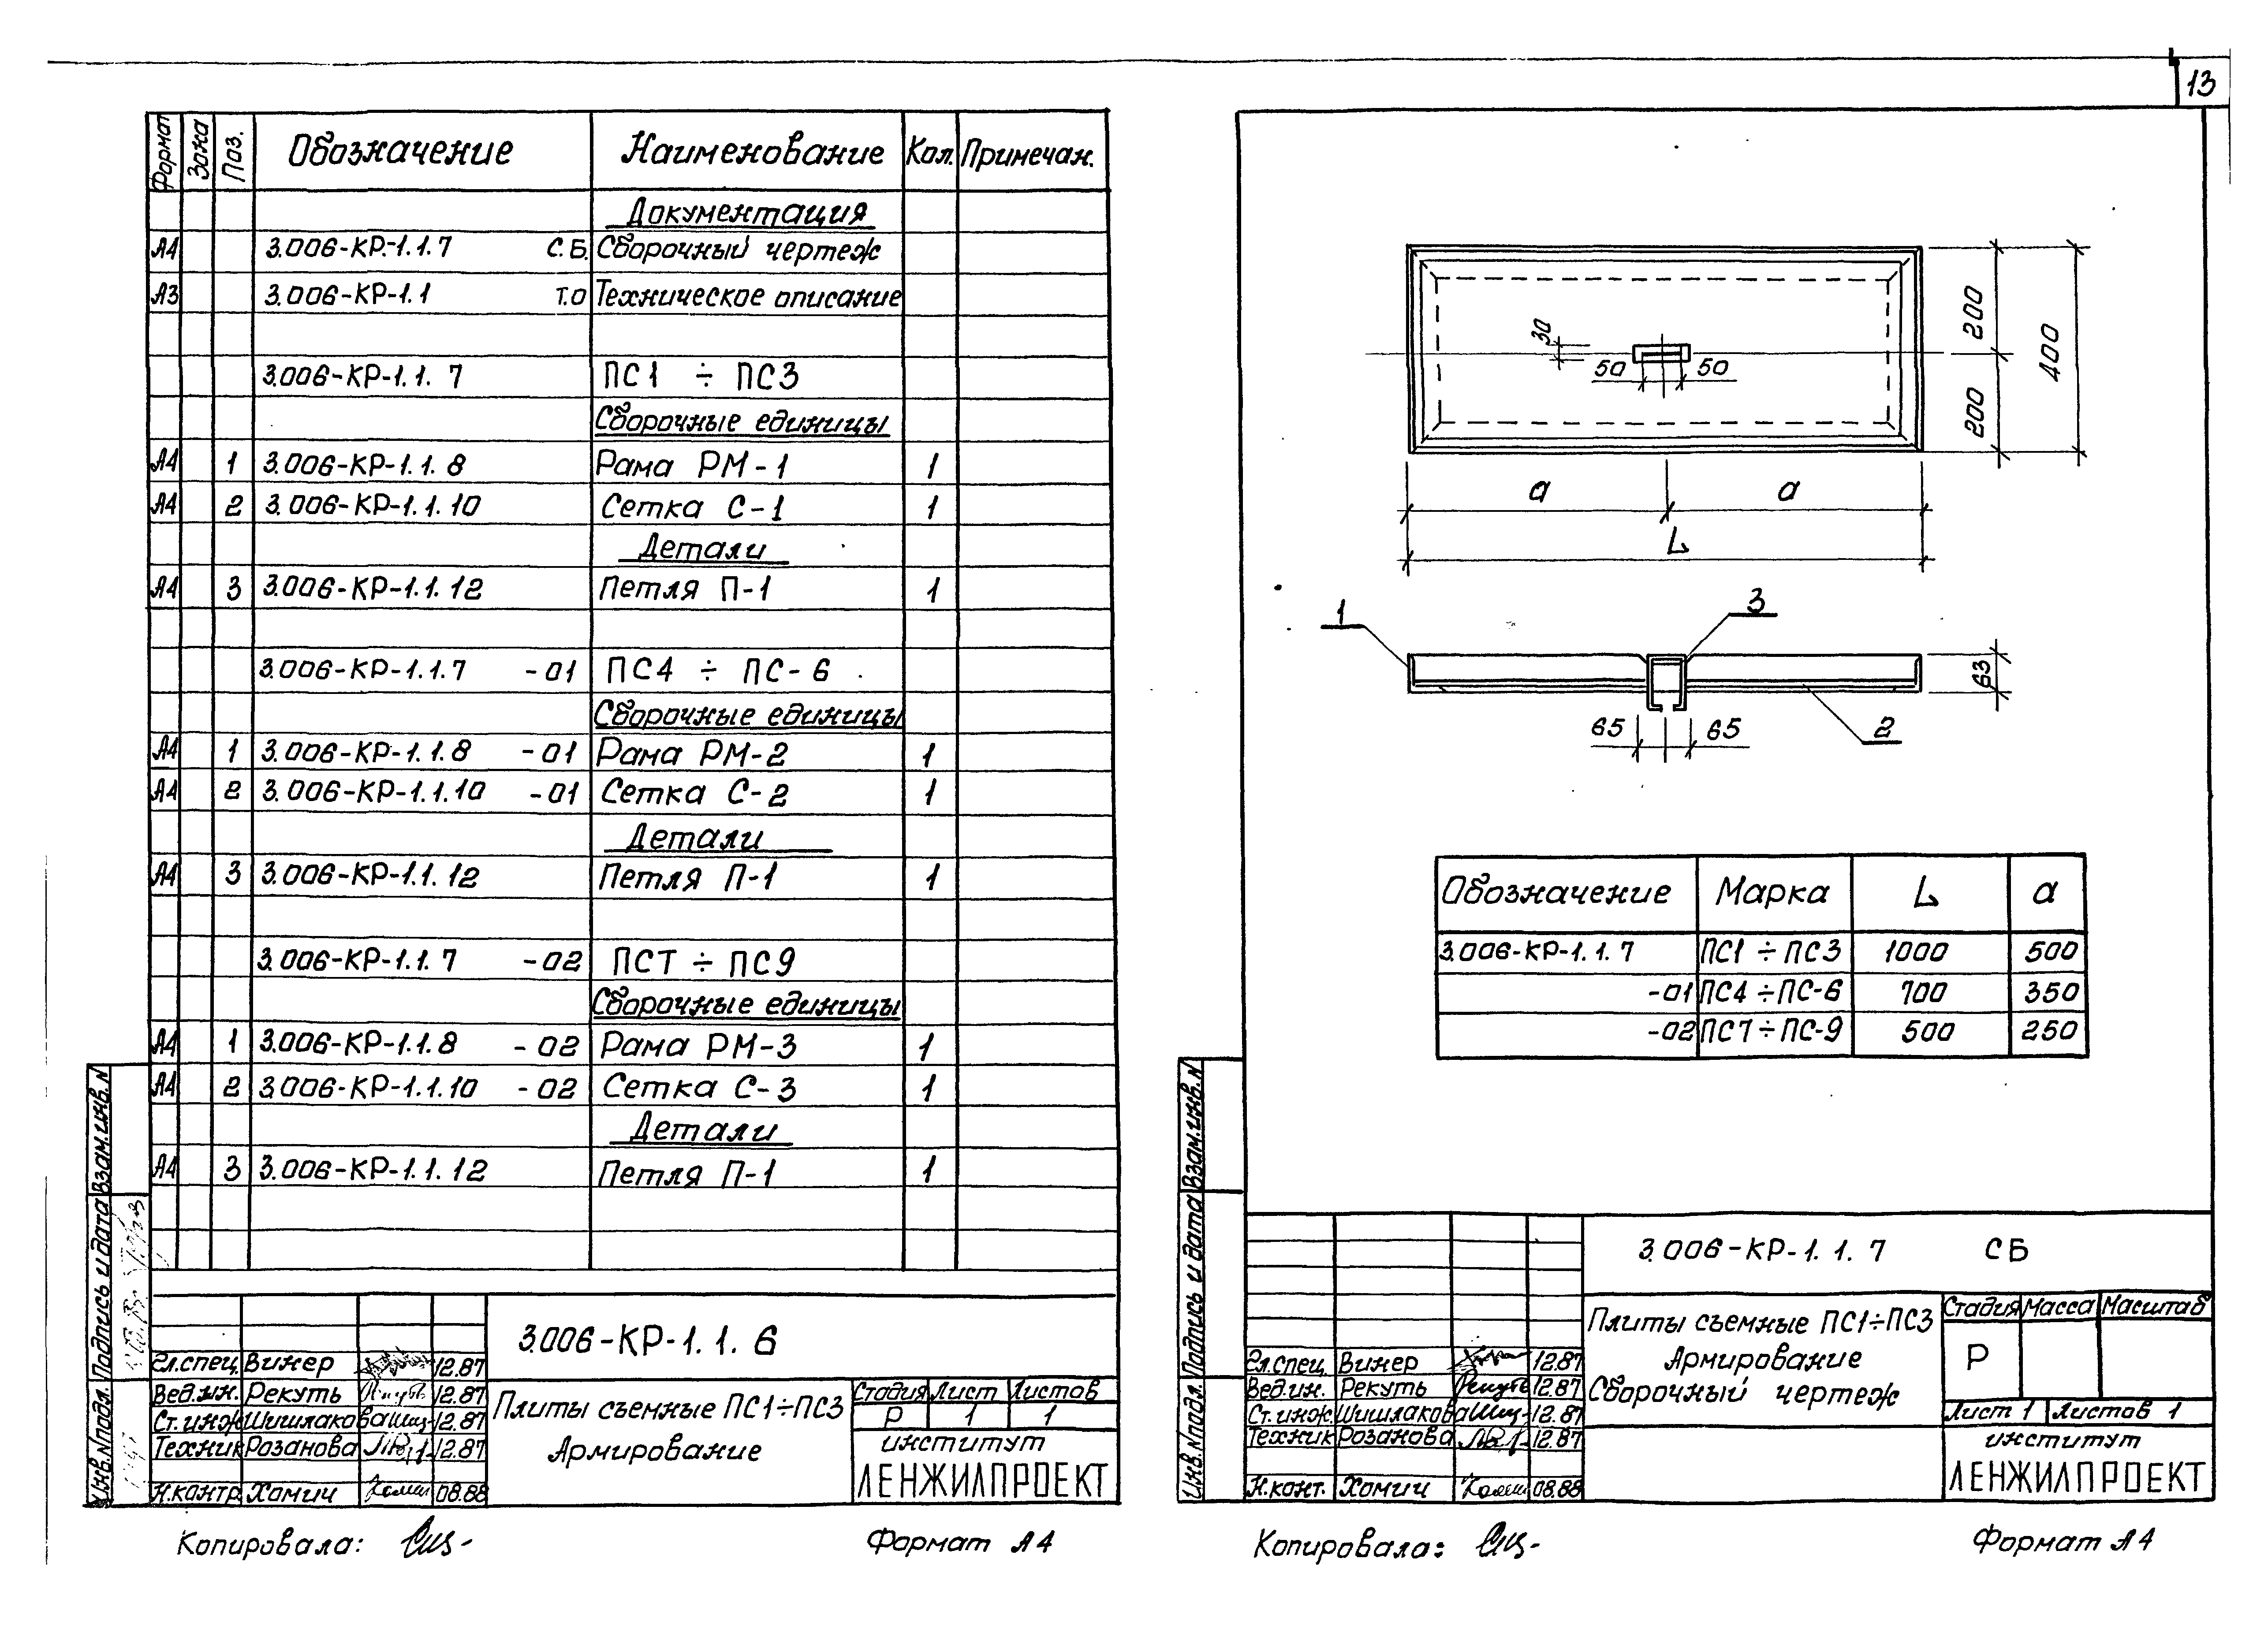 13
Формат Зона Поз. Обозначение Наименование Кол. Примечан.
Документация
А4 3.006-КР-1.1.7 С.Б. Сборочный чертеж
А3 3.006-КР-1.1 Т.О Техническое описание
3.006-КР-1.1.7 ПС1 ÷ ПС3
Сборочные единицы
А4 1 3.006-КР-1.1.8 Рама РМ-1 1
А4 2 3.006-КР-1.1.10 Сетка С-1 1
Детали
А4 3 3.006-КР-1.1.12 Петля П-1 1
3.006-КР-1.1.7 -01 ПС4 ÷ ПС-6
Сборочные единицы
А4 1 3.006-КР-1.1.8 -01 Рама РМ-2 1
А4 2 3.006-КР-1.1.10 -01 Сетка С-2 1
Детали
А4 3 3.006-КР-1.1.12 Петля П-1 1
3.006-КР-1.1.7 -02 ПСТ ÷ ПС9
Сборочные единицы
А4 1 3.006-КР-1.1.8 -02 Рама РМ-3 1
А4 2 3.006-КР-1.1.10 -02 Сетка С-3 1
Детали
А4 3 3.006-КР-1.1.12 Петля П-1 1
Взам.инв.N
Подпись и дата
Инв.Nподл.
3.006-КР-1.1.6
Гл.спец. Винер 12.87
Вед.ин. Рекуть 12.87
Ст.инж. Шишлакова 12.87
Техник Розанова 12.87
Н.контр. Хомич 08.88
Плиты съемные ПС1÷ПС3
Армирование
Стадия Лист Листов
Р 1 1
институт
ЛЕНЖИЛПРОЕКТ
Копировала:
Формат А4
30
50 50
200
200
400
а а
L
1
3
63
65 65
2
Обозначение Марка L а
3.006-КР-1.1.7 ПС1 ÷ ПС3 1000 500
-01 ПС4 ÷ ПС-6 700 350
-02 ПС7 ÷ ПС-9 500 250
Взам.инв.N
Подпись и дата
Инв.Nподл.
3.006-КР-1.1.7 СБ
Гл.спец. Винер 12.87
Вед.ин. Рекуть 12.87
Ст.инж. Шишлакова 12.87
Техник Розанова 12.87
Н.конт. Хомич 08.88
Плиты съемные ПС1÷ПС3
Армирование
Сборочный чертеж
Стадия Масса Масштаб
Р
Лист 1 Листов 1
институт
ЛЕНЖИЛПРОЕКТ
Копировала:
Формат А4